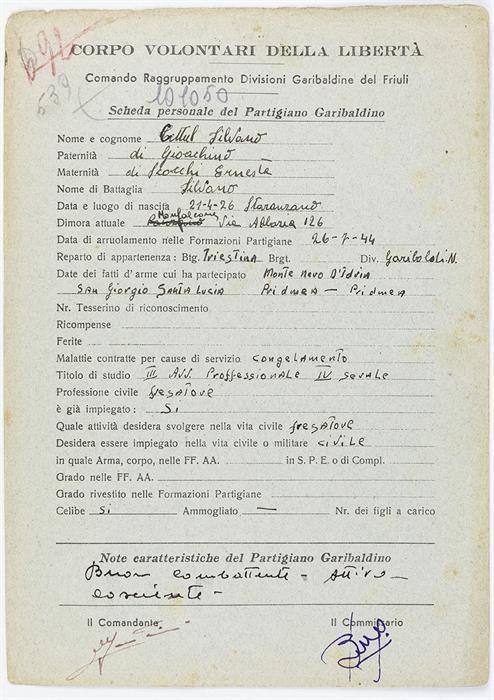 692
539
CORPO VOLONTARI DELLA LIBERTÀ
Comando Raggruppamento Divisioni Garibaldine del Friuli
101050
Scheda personale del Partigiano Garibaldino
Nome e cognome Cettul Silvano
Paternità di Gioachino
Maternità di Stocchi Ernesta
Nome di Battaglia Silvano
Data e luogo di nascita 21-4-26 Staranzano
Dimora attuale Monfalcone Via Ablaria 126
Data di arruolamento nelle Formazioni Partigiane 26-7-44
Reparto di appartenenza: Btg. Triestina Brgt. Div. Garibaldi N.
Date dei fatti d'arme cui ha partecipato Monte Nevo D'Idria
San Giorgio Santa Lucia Pridmea - Pridmea
Nr. Tesserino di riconoscimento
Ricompense
Ferite
Malattie contratte per cause di servizio congelamento
Titolo di studio III Avv. Proffessionale IV serale
Professione civile fresatore
è già impiegato: Si
Quale attività desidera svolgere nella vita civile fresatore
Desidera essere impiegato nella vita civile o militare civile
in quale Arma, corpo, nelle FF. AA. in S. P. E. o di Compl.
Grado nelle FF. AA.
Grado rivestito nelle Formazioni Partigiane
Celibe si Ammogliato — Nr. dei figli a carico
Note caratteristiche del Partigiano Garibaldino
Buon combattente - attivo -
cosciente -
Il Comandante Il Commissario